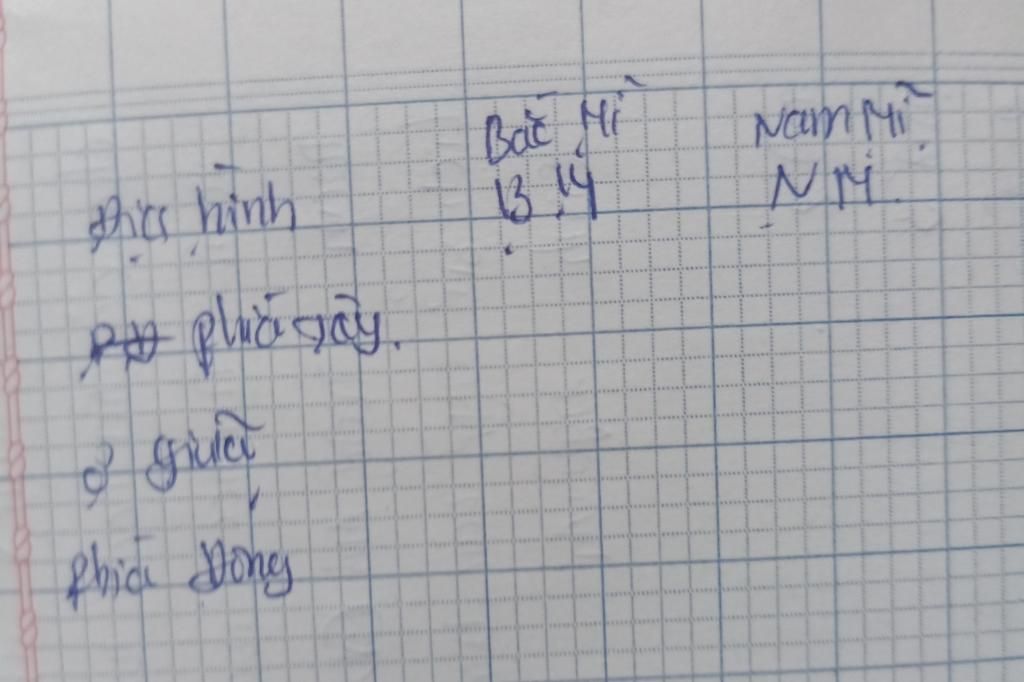 Bắc Mĩ Nam Mĩ
Địa hình B.M N.M.
phía tây.
ở giữa
Phía Đông